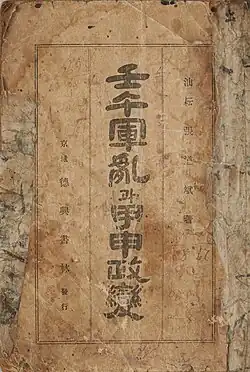 張
壬午軍亂과甲申政變
京城 德興書林 發行